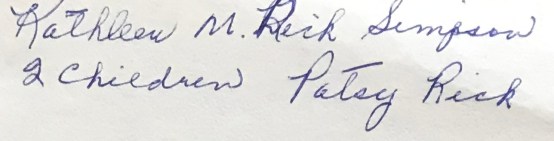 Kathleen M. Rick Simpson
2 Children Patsy Rick